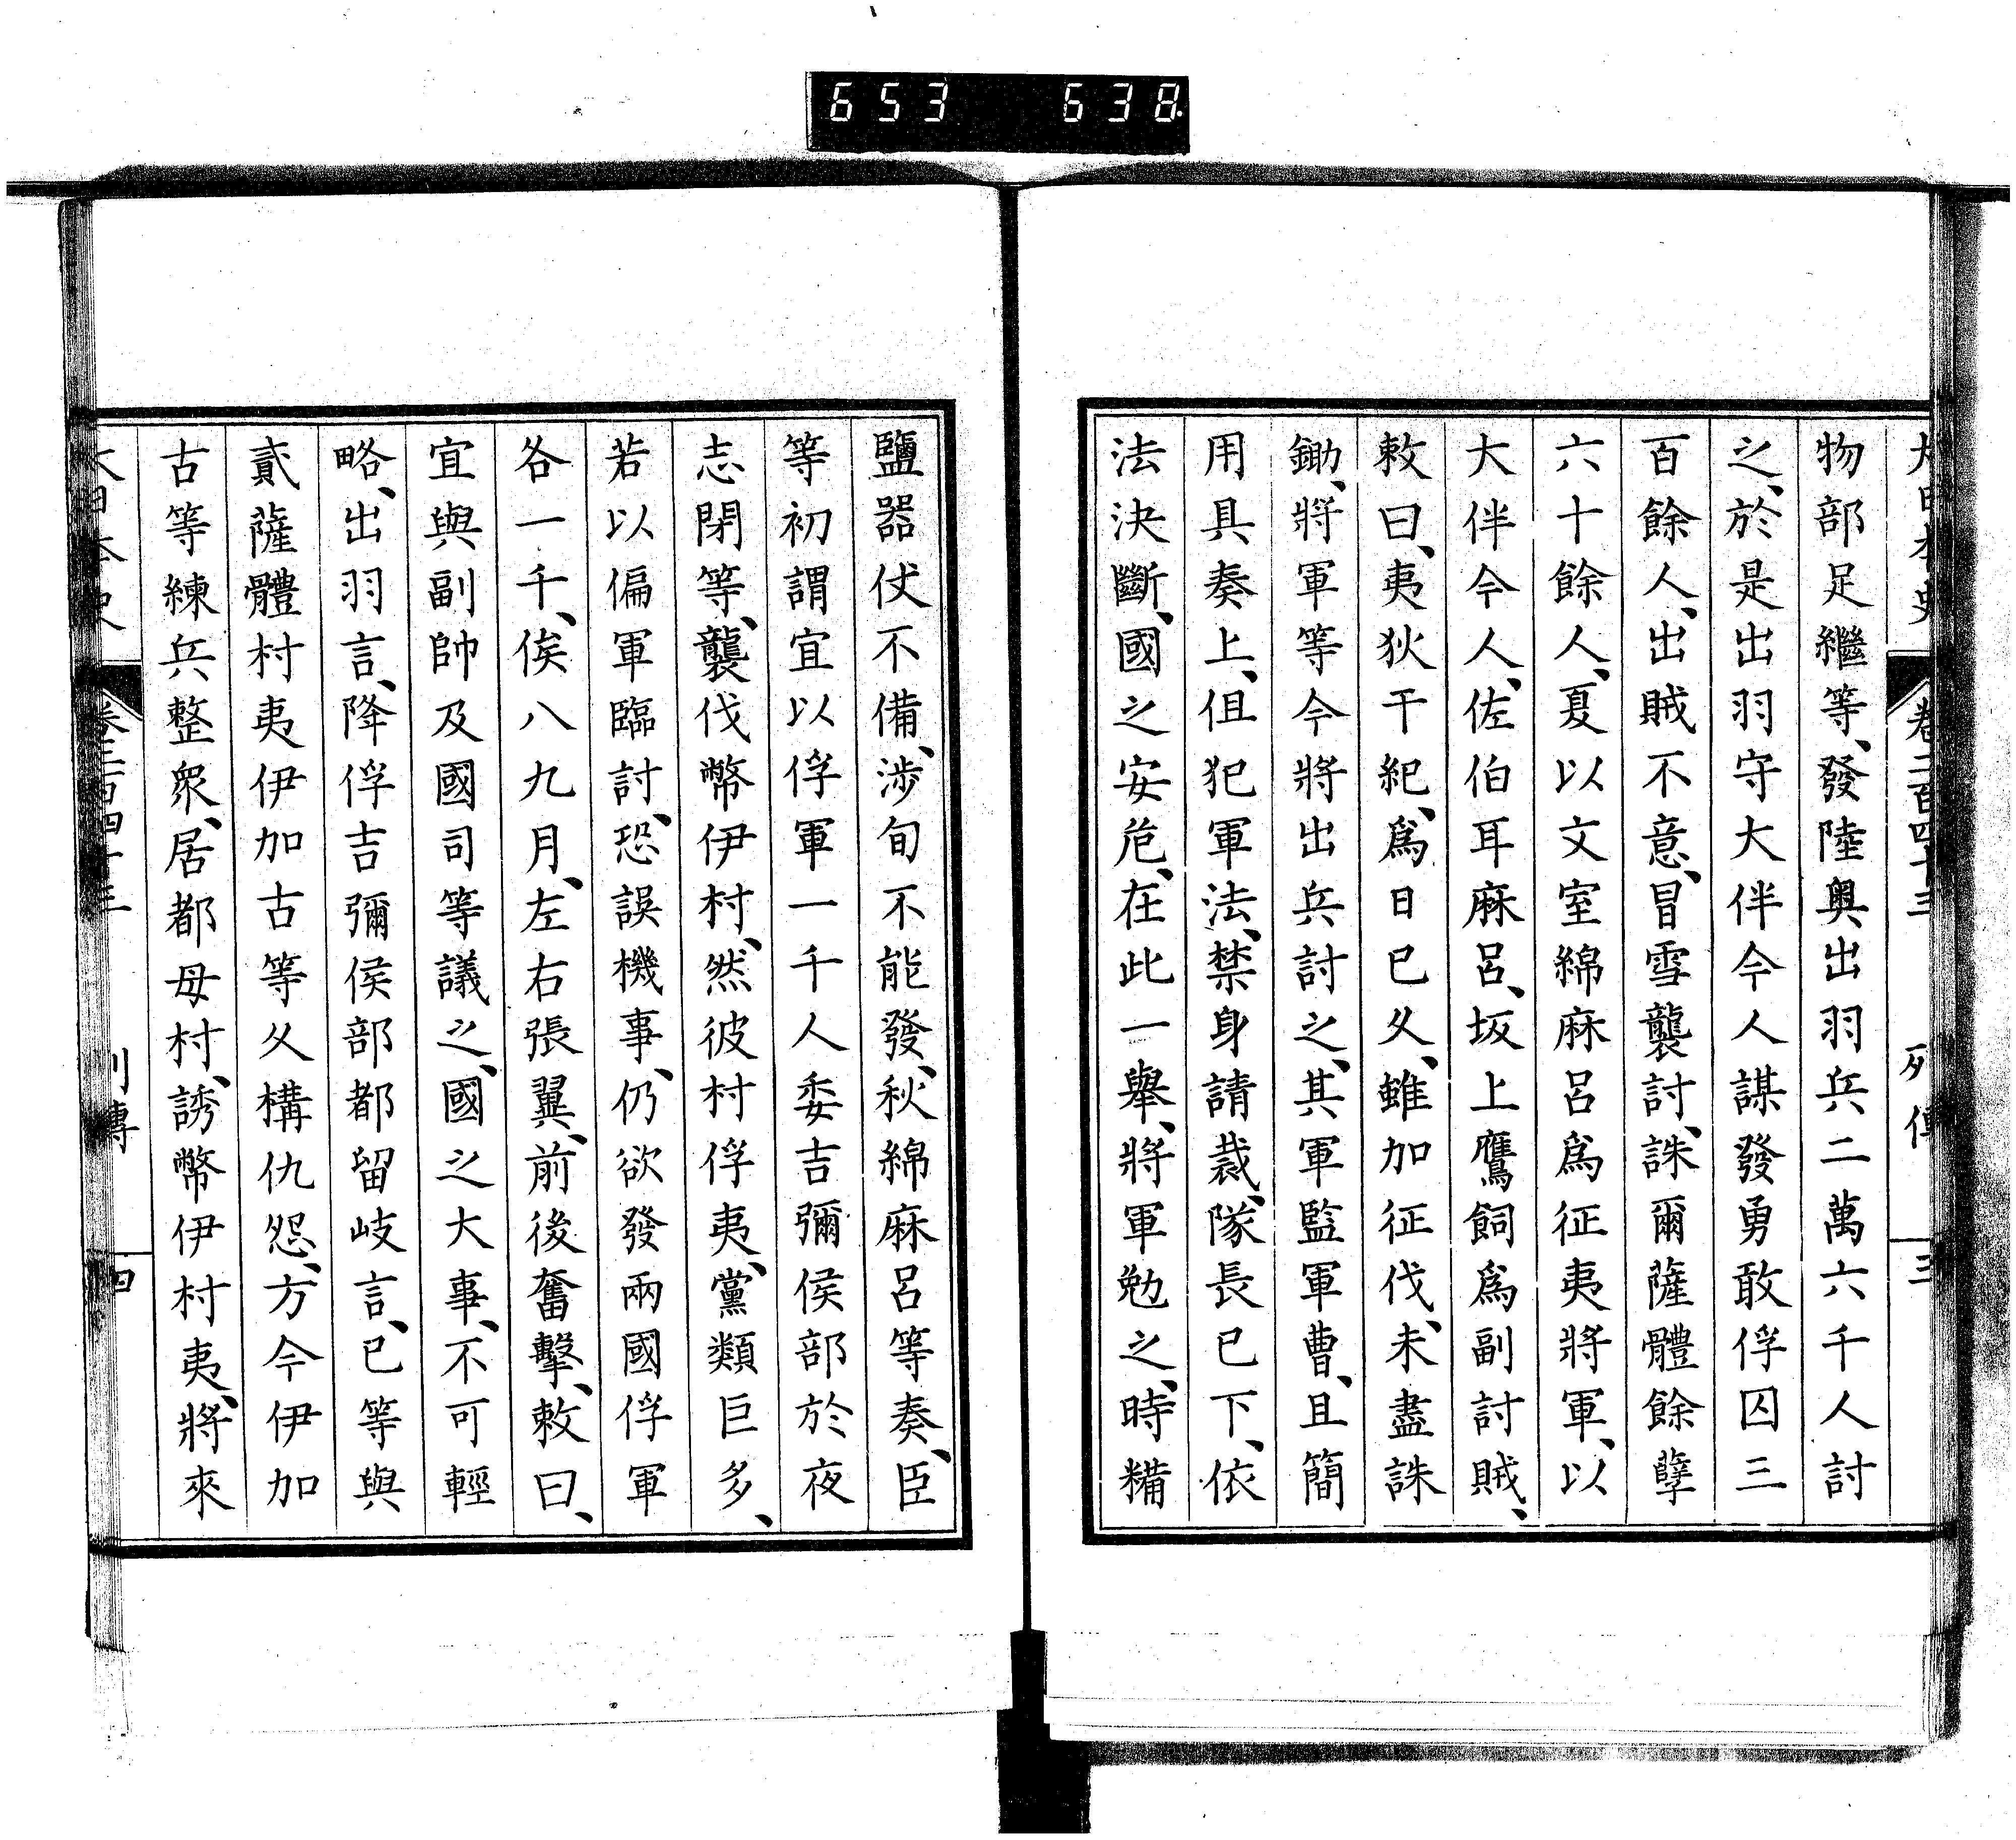 653 638
大日本史 卷二百四十三 列傳 三
物部足繼等、發陸奥出羽兵二萬六千人討
之、於是出羽守大伴今人謀發勇敢俘囚三
百餘人、出賊不意、冒雪襲討、誅爾薩體餘孽
六十餘人、夏以文室綿麻呂爲征夷將軍、以
大伴今人、佐伯耳麻呂、坂上鷹飼爲副討賊、
敕曰、夷狄干紀、爲日已久、雖加征伐、未盡誅
鋤、將軍等今將出兵討之、其軍監軍曹、且簡
用具奏上、但犯軍法、禁身請裁、隊長已下、依
法決斷、國之安危、在此一舉、將軍勉之、時糒
鹽器仗不備、渉旬不能發、秋綿麻呂等奏、臣
等初謂宜以俘軍一千人委吉彌侯部於夜
志閇等、襲伐幣伊村、然彼村俘夷、黨類巨多、
若以偏軍臨討、恐誤機事、仍欲發兩國俘軍
各一千、俟八九月、左右張翼、前後奮擊、敕曰、
宜與副帥及國司等議之、國之大事、不可輕
略、出羽言、降俘吉彌侯部都留岐言、已等與
貳薩體村夷伊加古等久構仇怨、方今伊加
古等練兵整衆、居都母村、誘幣伊村夷、將來
大日本史 卷二百四十三 列傳 四